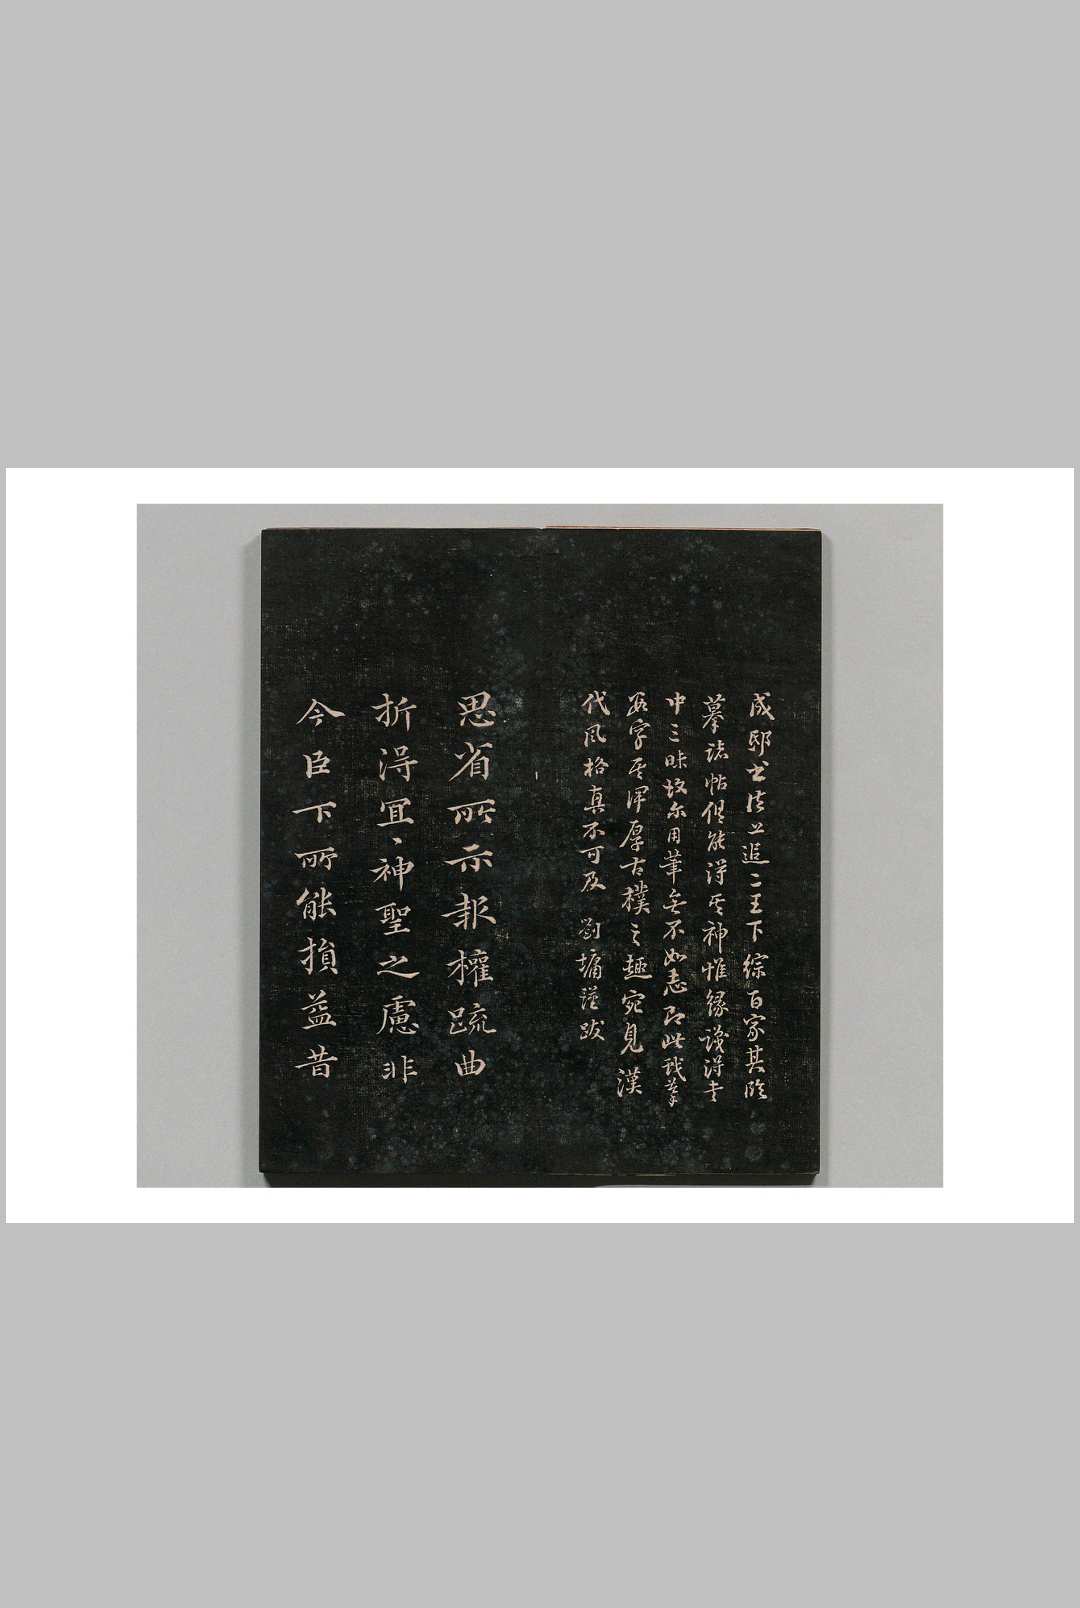 成邸书法上追二王下綜百家其臨
摹諸帖俱能得其神惟緣識得書
中三昧故尔用筆無不如志即此戰摹
數字其渾厚古樸之趣宛見漢
代風格真不可及 劉墉謹跋
思省所示報權疏曲
折得宜、神聖之慮非
今臣下所能損益昔